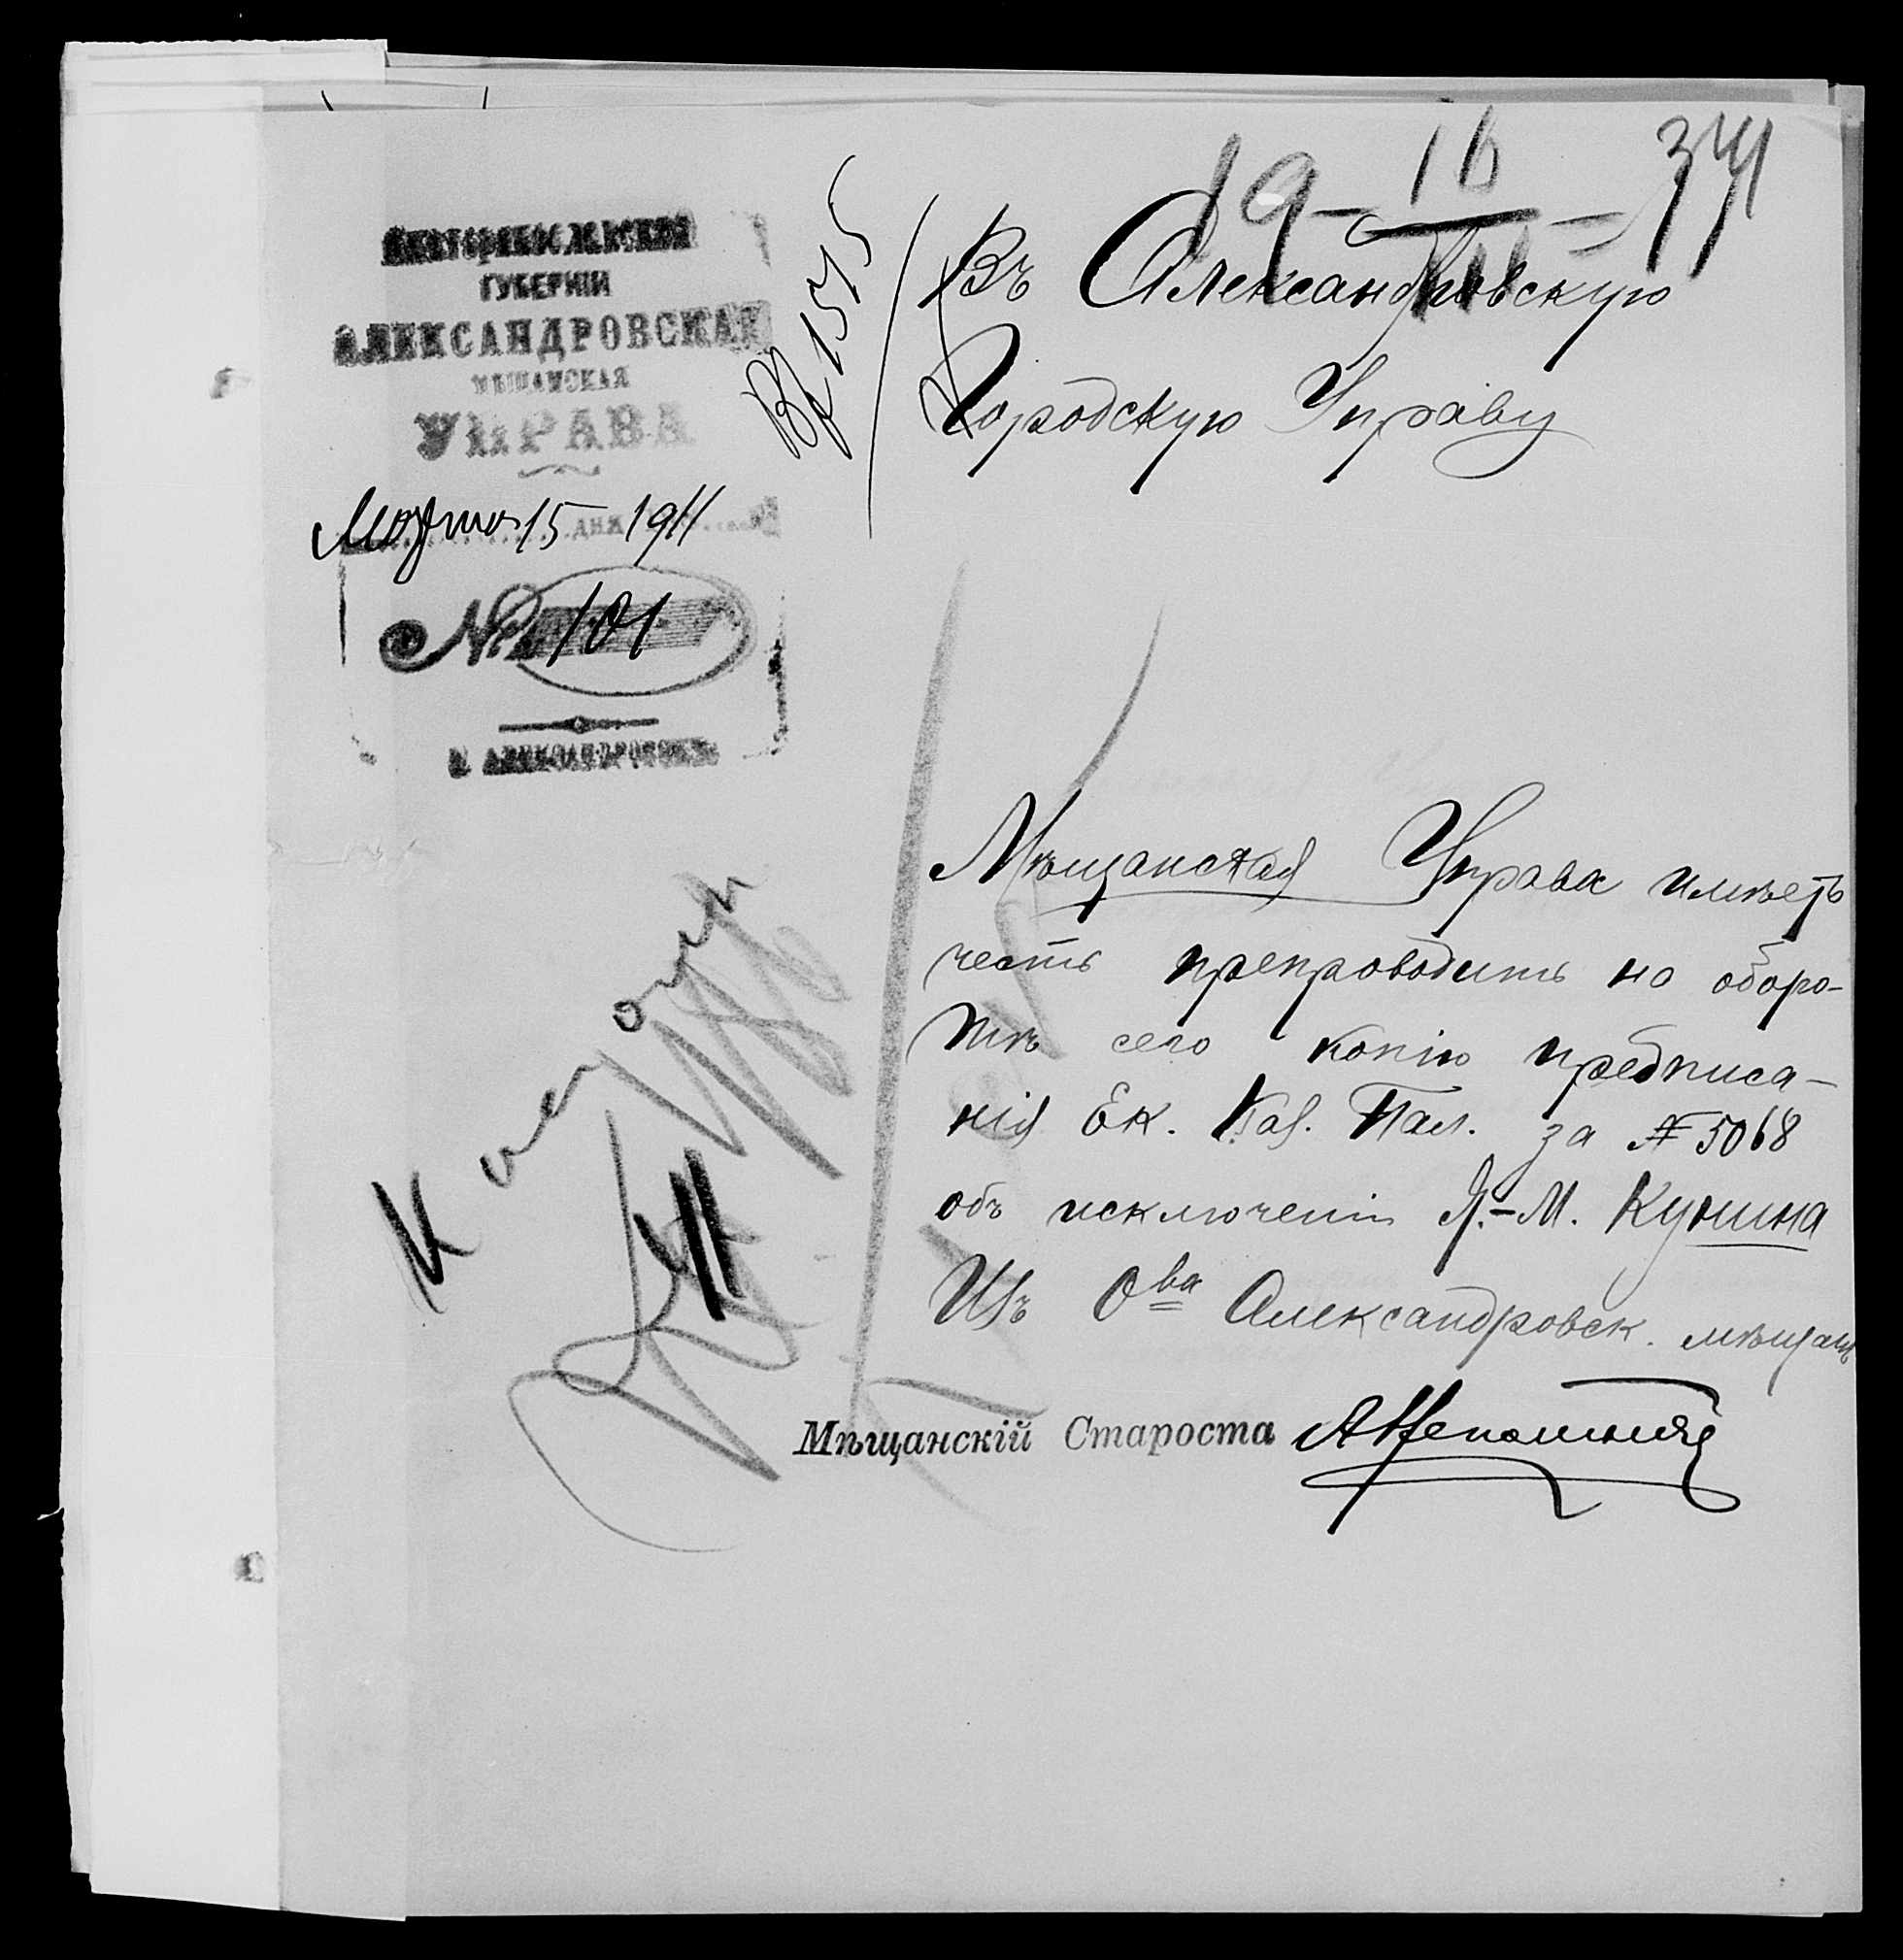 19 – 16/III – 341
Екатеринославской
ГУБЕРНІИ
АЛЕКСАНДРОВСКАЯ
МѢЩАНСКАЯ
УПРАВА
Марта 15 дня 1911
№ 101
Г. АЛЕКСАНДРОВСКЪ
Вх 1515
Въ Александровскую
Городскую Управу
Мѣщанская Управа имѣетъ
честь препроводить на оборо-
тѣ сего копію предписа-
нія Ек. Каз. Пал. за № 5068
объ исключеніи Я.-М. Кунина
Изъ О-ва Александровск. мѣщанъ
Мѣщанскій Староста АНепомнящій